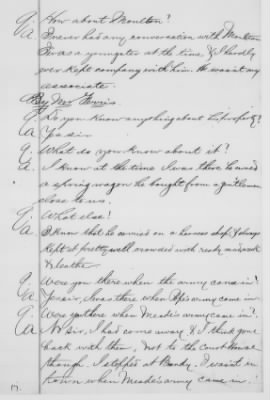 Q. How about Moulton?
A. I never had any conversation with Moulton
I was a youngster at the time, & I hardly
ever kept company with him. He wasn't any
associate.
By Mr
Q. Do you know anything about his property?
A. Yes sir
Q. What do you know about it?
A. I know at the time I was there he owned
a spring wagon he bought from a gentleman
close to us.
Q. What else?
A. I know that he carried on a harness shop, & always
kept it pretty well crowded with ready made work
& leather
Q. Were you there when the army came in?
A. Yes sir, I was there when Pope's army came in.
Q. Were you there when Meade's army came in?
A. No sir, I had come away & I think gone
back with them, not to the Court House
though. I stopped at Brandy. I wasn't in
town when Meade's army came in.